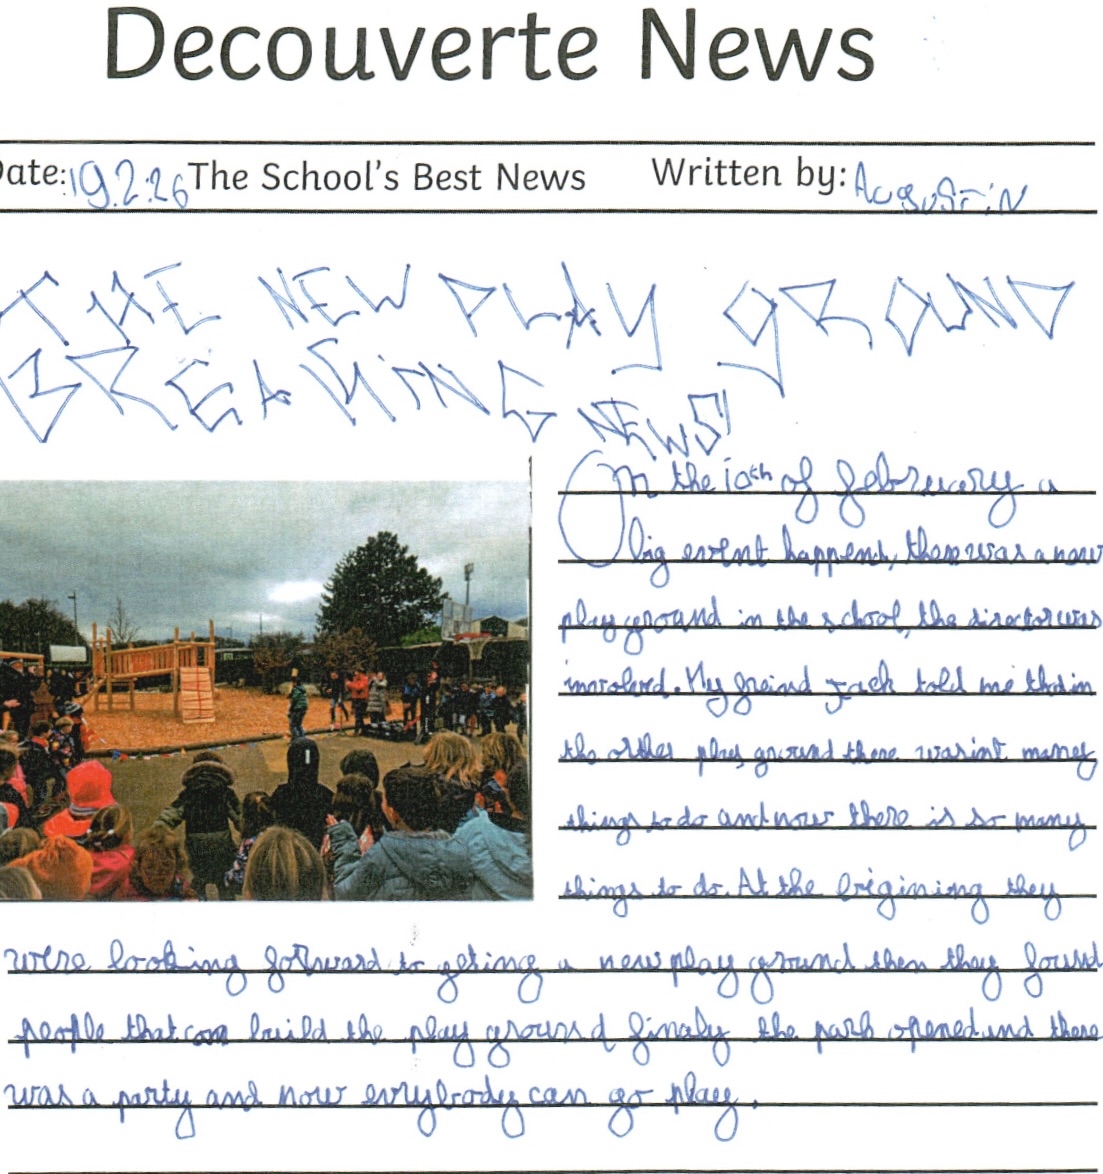 Decouverte News
Date: 19.2.26 The School's Best News Written by: Augustin
THE NEW PLAY GROUND
BREAKING NEWS!
On the 10th of februery a
big event happend, there was a new
play ground in the school, the director was
involved. My freind Jack told me that in
the other play ground there wasint many
things to do and now there is so many
things to do. At the bigining they
were looking forward to geting a new play ground then they found
people that can build the play ground finaly the park opened and there
was a party and now evrybody can go play.